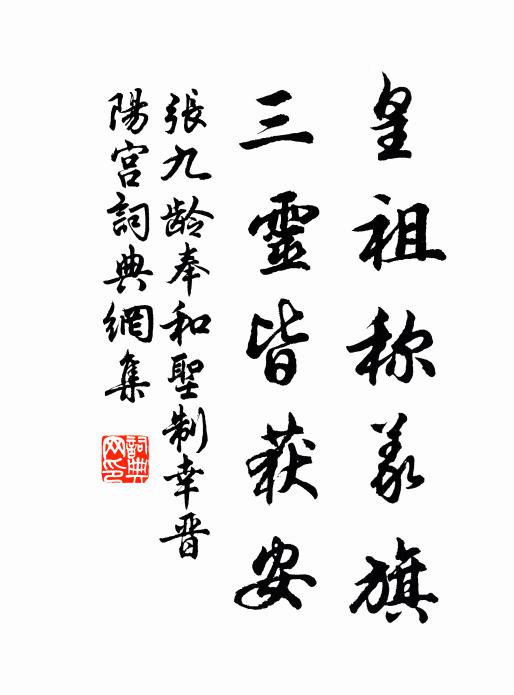 皇祖称義旗
三靈皆获安
張九龄奉和聖制幸晋
陽宮詞典網集
詞典網印